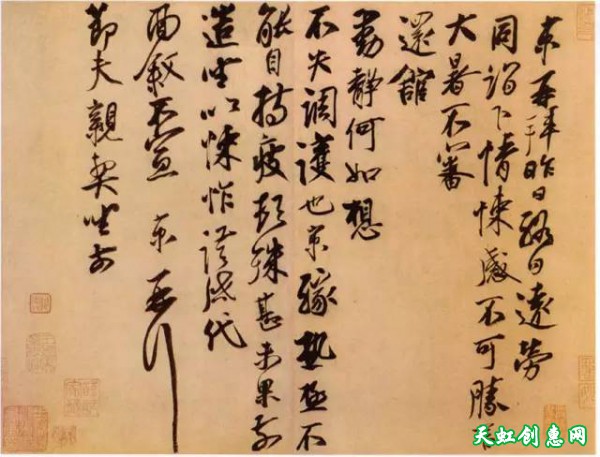 京再拜昨日終日遠勞
同詣下情悚感不可勝言
大暑不審
還館
動靜何如想
不失調護也京緣熱極不
能自持疲頓殊甚未果前
造坐以悚怍謹啓代
面敘不宣 京再拜
節夫親契坐前
天虹创惠网